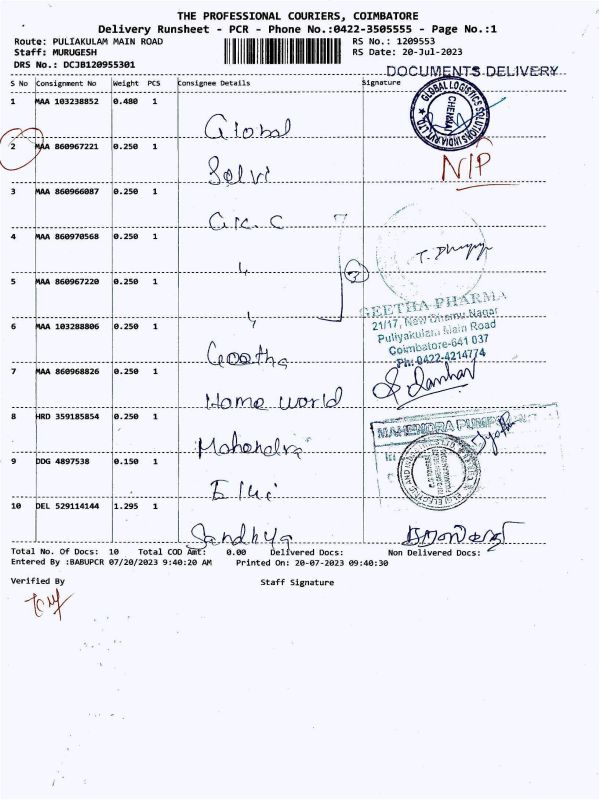 THE PROFESSIONAL COURIERS, COIMBATORE
Delivery Runsheet - PCR - Phone No.:0422-3505555 - Page No.:1
Route: PULIAKULAM MAIN ROAD RS No.: 1209553
Staff: MURUGESH RS Date: 20-Jul-2023
DRS No.: DCJB120955301
DOCUMENTS DELIVERY
S No Consignment No Weight PCS Consignee Details Signature
1 MAA 103238852 0.480 1
Global
GLOBAL LOGISTICS SOLUTIONS INDIA PVT. LTD.
CHENNAI
2 MAA 860967221 0.250 1
Selvi N/P
3 MAA 860966087 0.250 1
G.K. C
4 MAA 860970568 0.250 1
5 MAA 860967220 0.250 1
3
GEETHA PHARMA
21/17, New Dhamu Nagar
Puliyakulam Main Road
Coimbatore-641 037
Ph: 0422-4214774
6 MAA 103288806 0.250 1
Geetha
7 MAA 860968826 0.250 1
Home world
8 HRD 359185854 0.250 1
Mahendra
MAHENDRA PUMP
9 DDG 4897538 0.150 1
Elgi
10 DEL 529114144 1.295 1
Sandhya
Total No. Of Docs: 10 Total COD Amt: 0.00 Delivered Docs: Non Delivered Docs:
Entered By :BABUPCR 07/20/2023 9:40:20 AM Printed On: 20-07-2023 09:40:30
Verified By Staff Signature